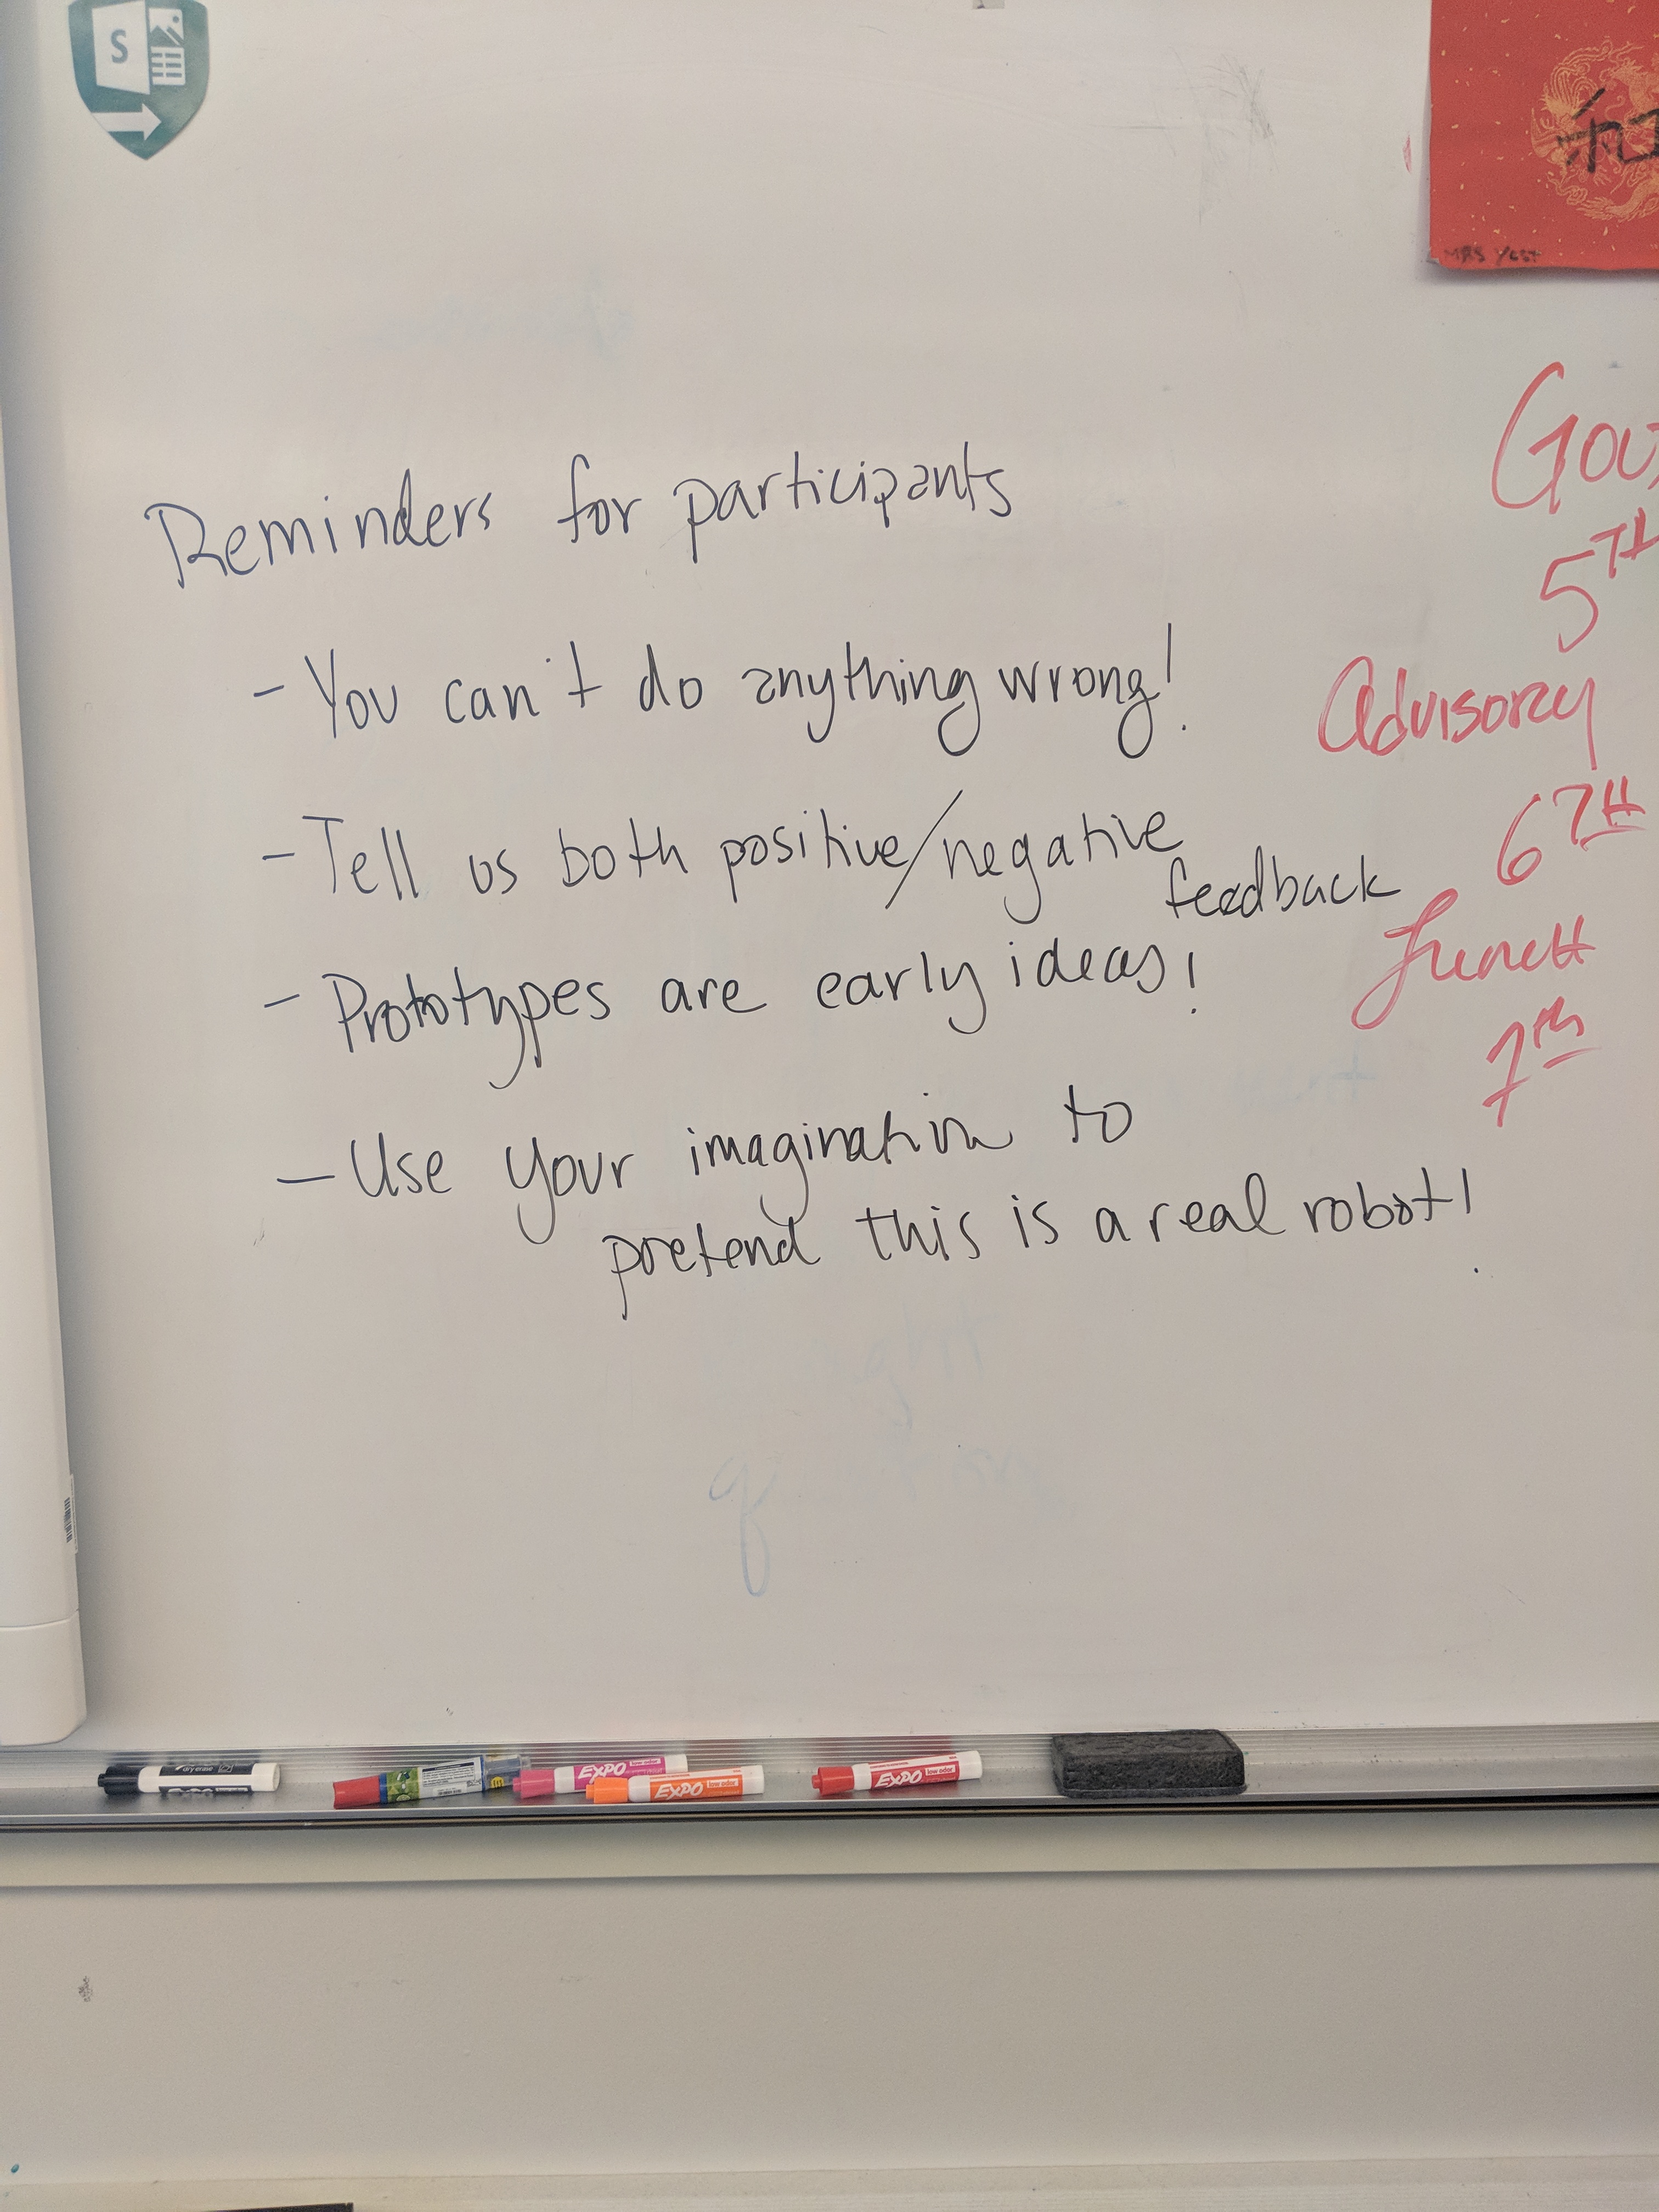 S
和
MRS YOST
Reminders for participants
- You can't do anything wrong!
- Tell us both positive/negative
feedback
- Prototypes are early ideas!
- Use your imagination to
pretend this is a real robot!
5TH
Advisory
6TH
Lunch
7th
dry erase
EXPO
EXPO low odor
EXPO low odor
EXPO low odor